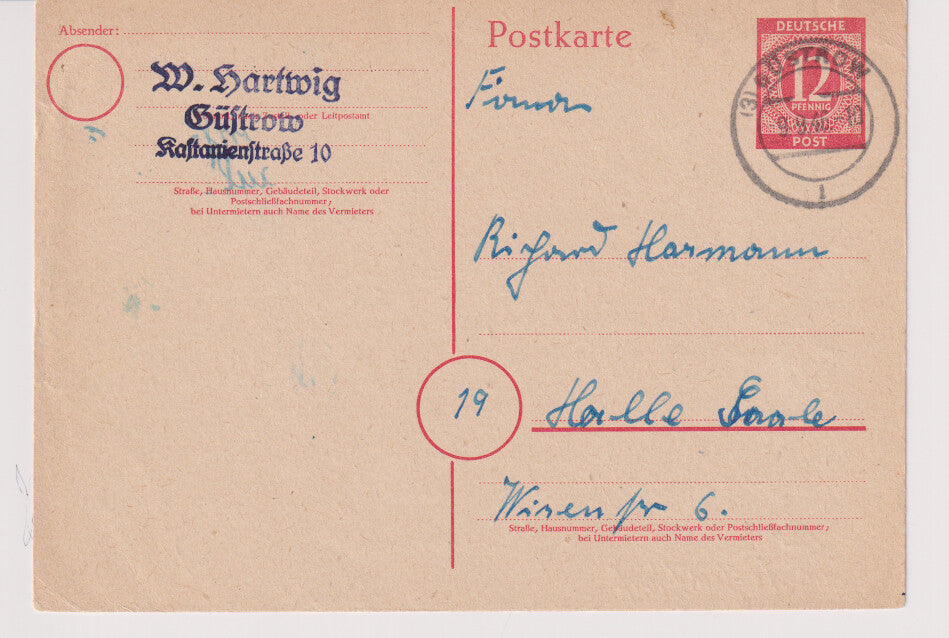 Absender:
W. Hartwig
Güstrow
oder Leitpostamt
Kastanienstraße 10
Straße, Hausnummer, Gebäudeteil, Stockwerk oder
Postschließfachnummer;
bei Untermietern auch Name des Vermieters
Postkarte
DEUTSCHE
12
PFENNIG
POST
(3) GÜSTROW
1
Firma
Richard Harmann
19
Halle Saale
Wisen str 6.
Straße, Hausnummer, Gebäudeteil, Stockwerk oder Postschließfachnummer;
bei Untermietern auch Name des Vermieters